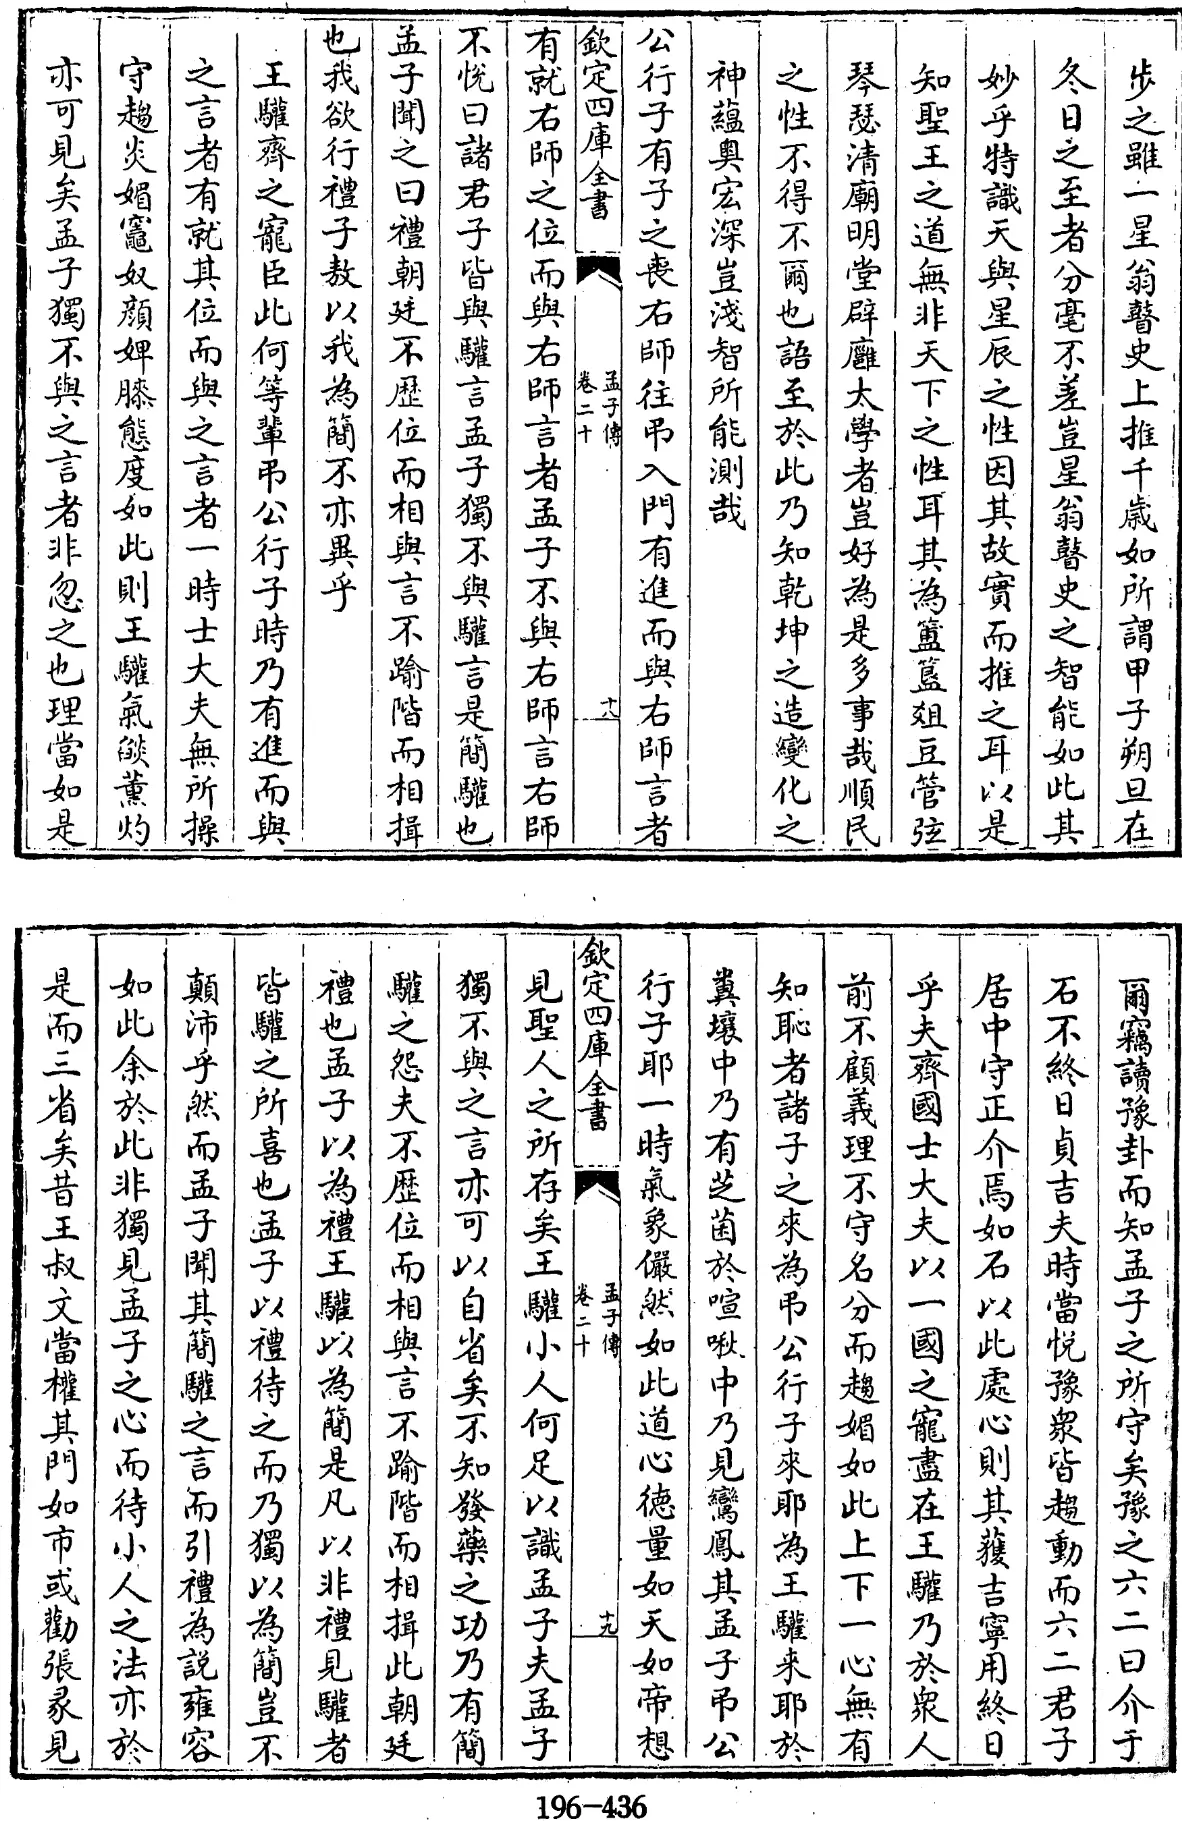 步之雖一星翁瞽史上推千歲如所謂甲子朔旦在
冬日之至者分毫不差豈星翁瞽史之智能如此其
妙乎特識天與星辰之性因其故實而推之耳以是
知聖王之道無非天下之性耳其為簠簋俎豆管弦
琴瑟清廟明堂辟廱太學者豈好為是多事哉順民
之性不得不爾也語至於此乃知乾坤之造變化之
神蘊奧宏深豈淺智所能測哉
公行子有子之喪右師往弔入門有進而與右師言者
欽定四庫全書
孟子傳
卷二十
十八
有就右師之位而與右師言者孟子不與右師言右師
不悅曰諸君子皆與驩言孟子獨不與驩言是簡驩也
孟子聞之曰禮朝廷不歷位而相與言不踰階而相揖
也我欲行禮子敖以我為簡不亦異乎
王驩齊之寵臣此何等輩弔公行子時乃有進而與
之言者有就其位而與之言者一時士大夫無所操
守趨炎媚竈奴顏婢膝態度如此則王驩氣燄薰灼
亦可見矣孟子獨不與之言者非忽之也理當如是
爾竊讀豫卦而知孟子之所守矣豫之六二曰介于
石不終日貞吉夫時當悅豫衆皆趨動而六二君子
居中守正介焉如石以此處心則其獲吉寧用終日
乎夫齊國士大夫以一國之寵盡在王驩乃於衆人
前不顧義理不守名分而趨媚如此上下一心無有
知恥者諸子之來為弔公行子來耶為王驩來耶於
糞壤中乃有芝菌於喧啾中乃見鸞鳳其孟子弔公
行子耶一時氣象儼然如此道心德量如天如帝想
欽定四庫全書
孟子傳
卷二十
十九
見聖人之所存矣王驩小人何足以識孟子夫孟子
獨不與之言亦可以自省矣不知發藥之功乃有簡
驩之怨夫不歷位而相與言不踰階而相揖此朝廷
禮也孟子以為禮王驩以為簡是凡以非禮見驩者
皆驩之所喜也孟子以禮待之而乃獨以為簡豈不
顛沛乎然而孟子聞其簡驩之言而引禮為說雍容
如此余於此非獨見孟子之心而待小人之法亦於
是而三省矣昔王叔文當權其門如市或勸張彖見
196-436